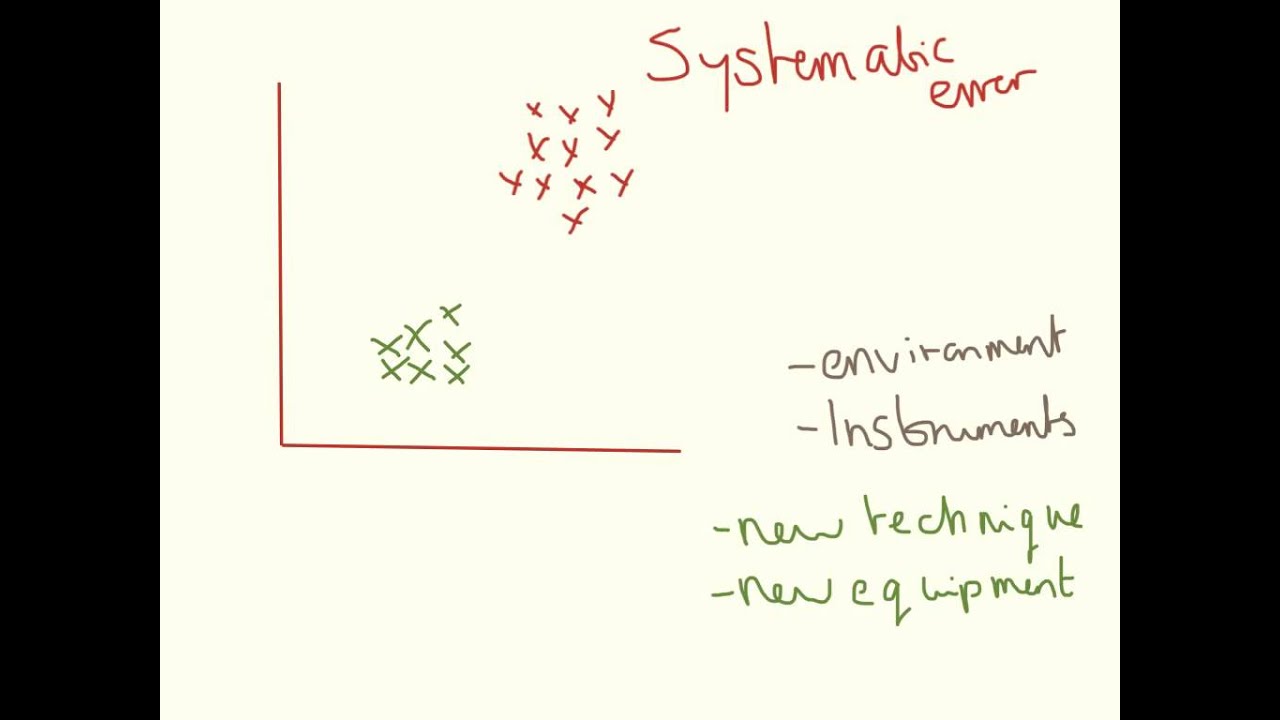 Systematic
error
- environment
- Instruments
- new technique
- new equipment